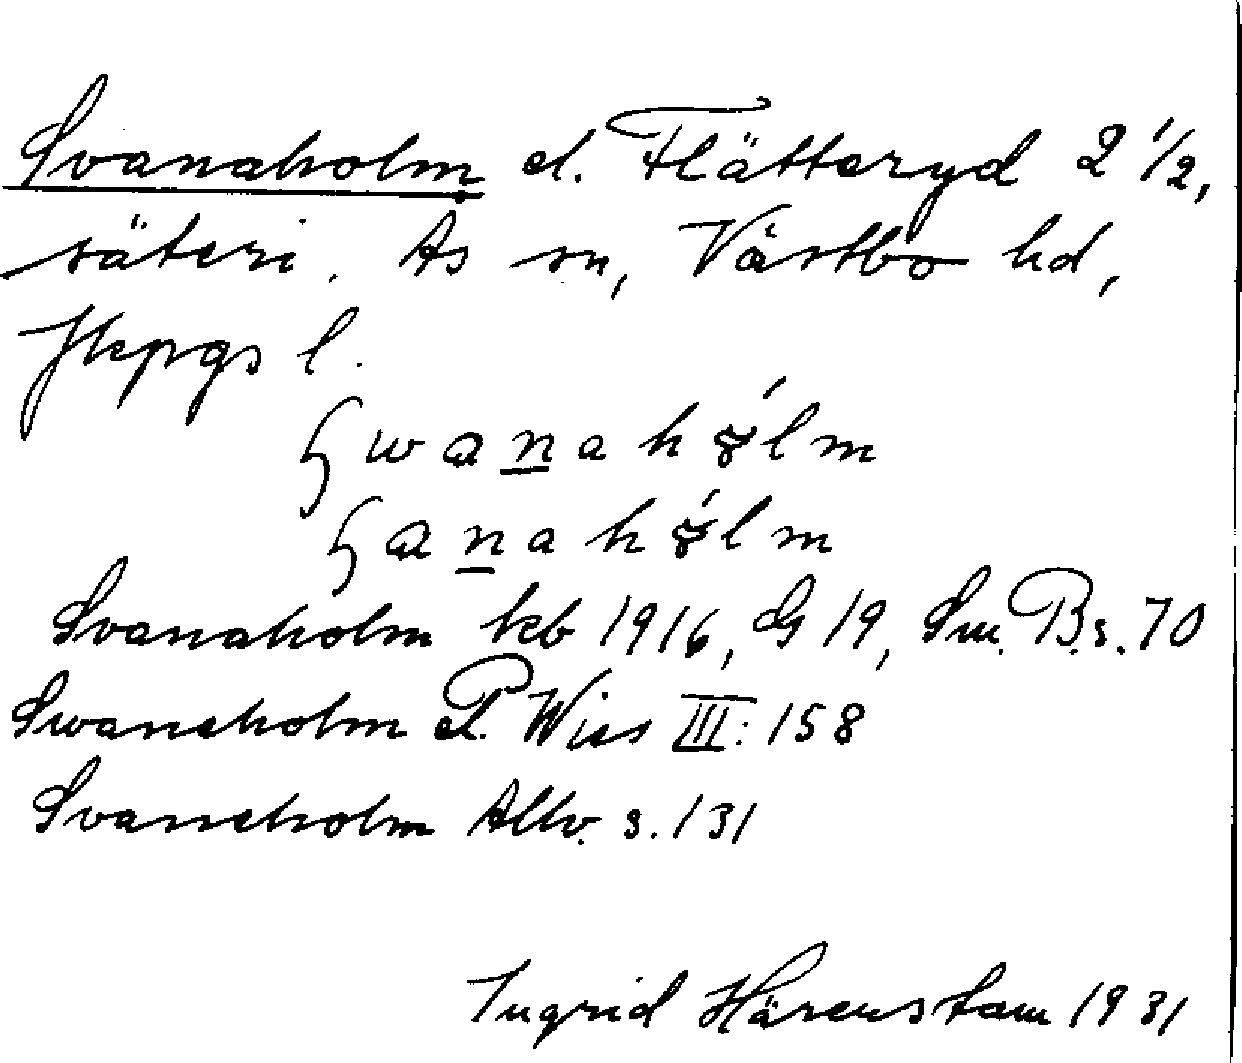 Svanaholm el. Flätteryd 2 1/2,
säteri. Ås sn, Västbo hd,
Jkpgs l.
Svanaholm kb 1916, G 19, Sm. B. s. 70
Swaneholm P. Wies III: 158
Svaneholm Allv. s. 131
Ingrid Härenstam 1931